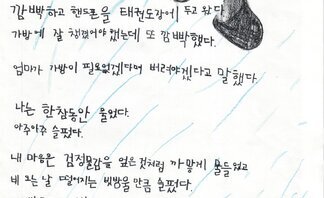 깜빡하고 핸드폰을 태권도장에 두고 왔다
가방에 잘 챙겼어야 했는데 또 깜빡했다.
엄마가 가방이 필요없겠다며 버려야겠다고 말했다.
나는 한참동안 울었다.
아주아주 슬펐다.
내 마음은 검정물감을 엎은것처럼 까맣게 물들었고
비 오는 날 떨어지는 빗방울 만큼 슬펐다.